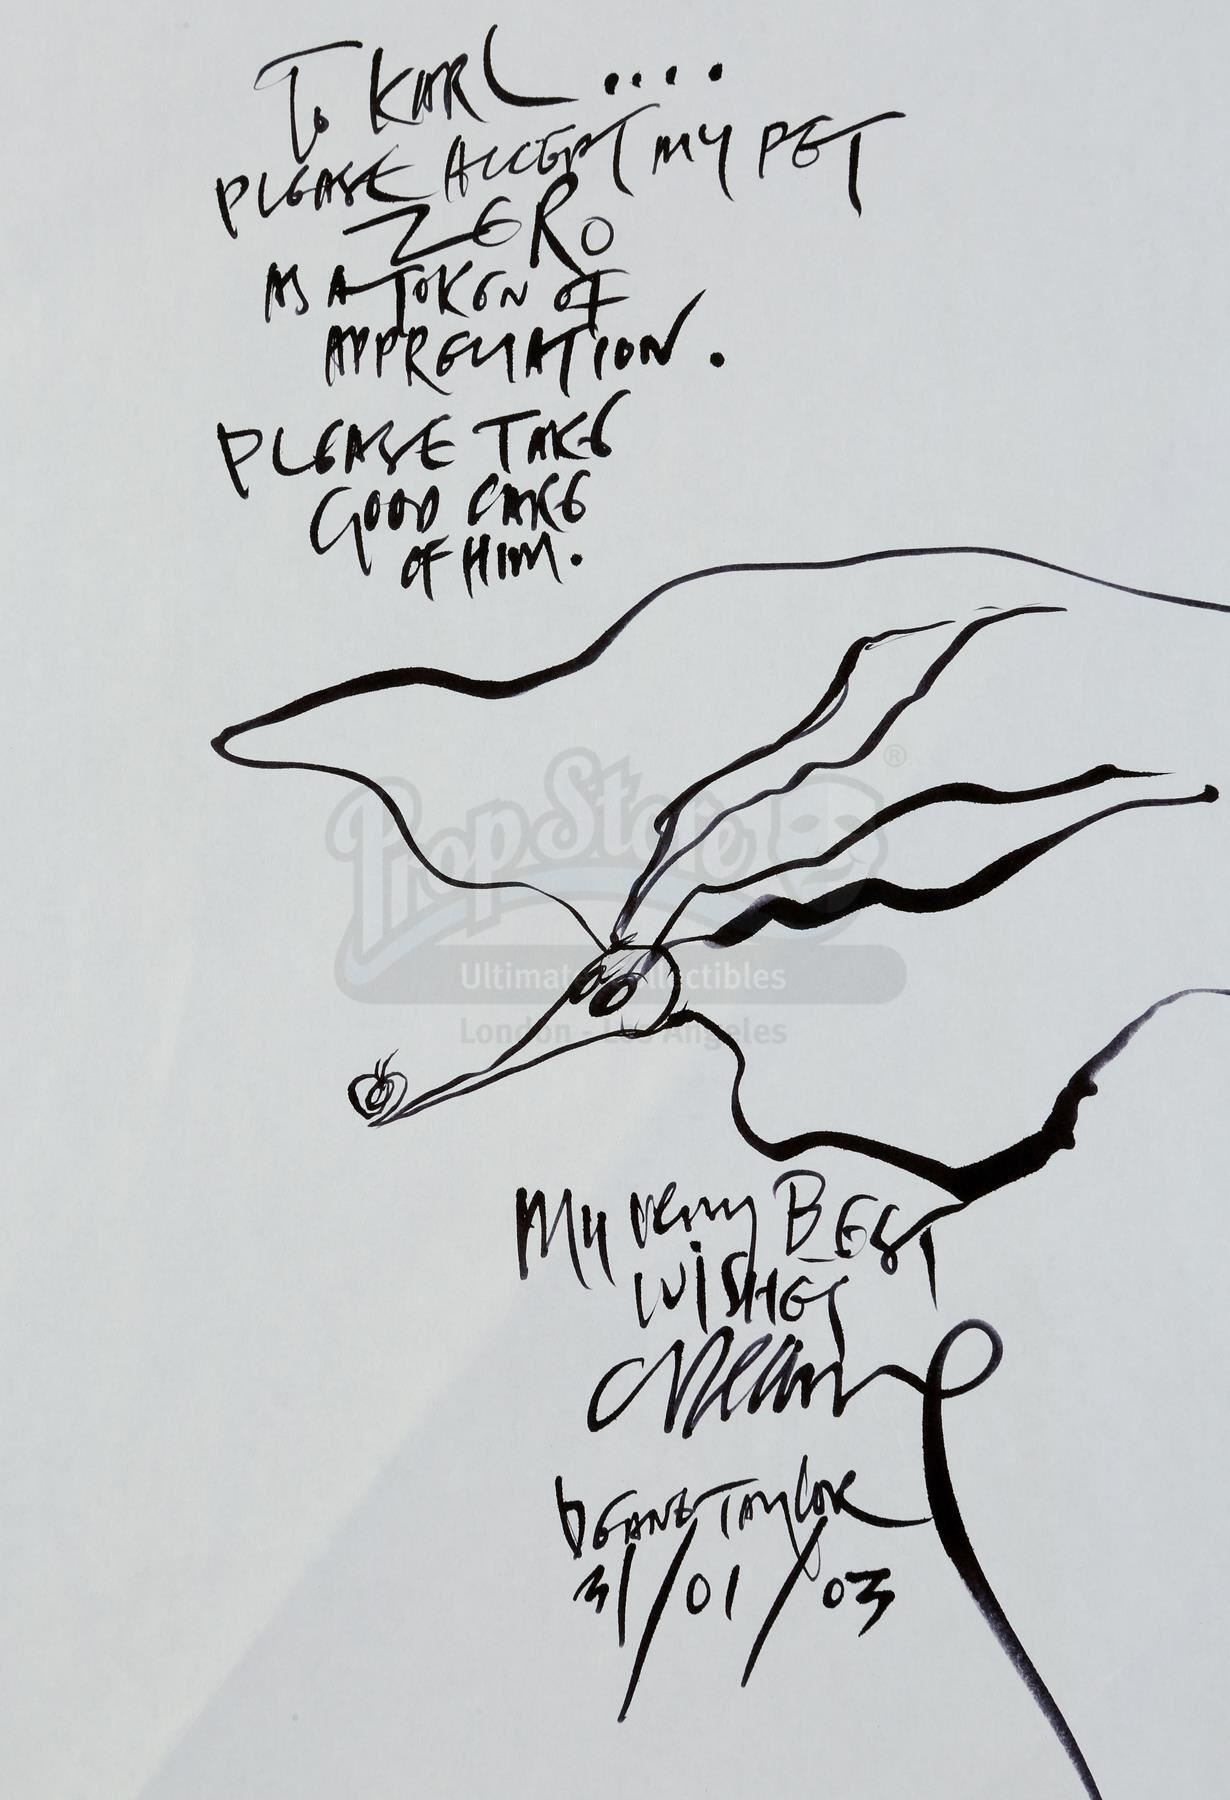 To KARL ....
PLEASE ACCEPT MY PET
ZERO
AS A TOKEN OF
APPRECIATION.
PLEASE TAKE
GOOD CARE
OF HIM.
PropStore ®
Ultimate Collectibles
London - Los Angeles
My very BEST
WISHES
Deane
DEANE TAYLOR
31/01/03